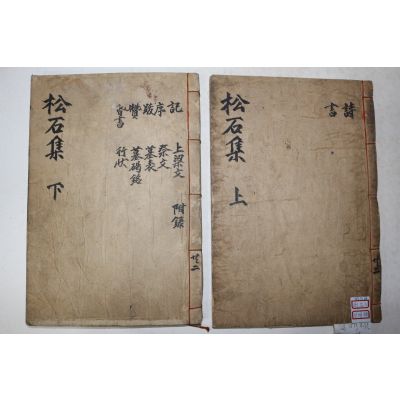 松石集 上
詩
書
松石集 下
記
序
跋
贊
上梁文
祭文
墓表
墓碣銘
行狀
附錄